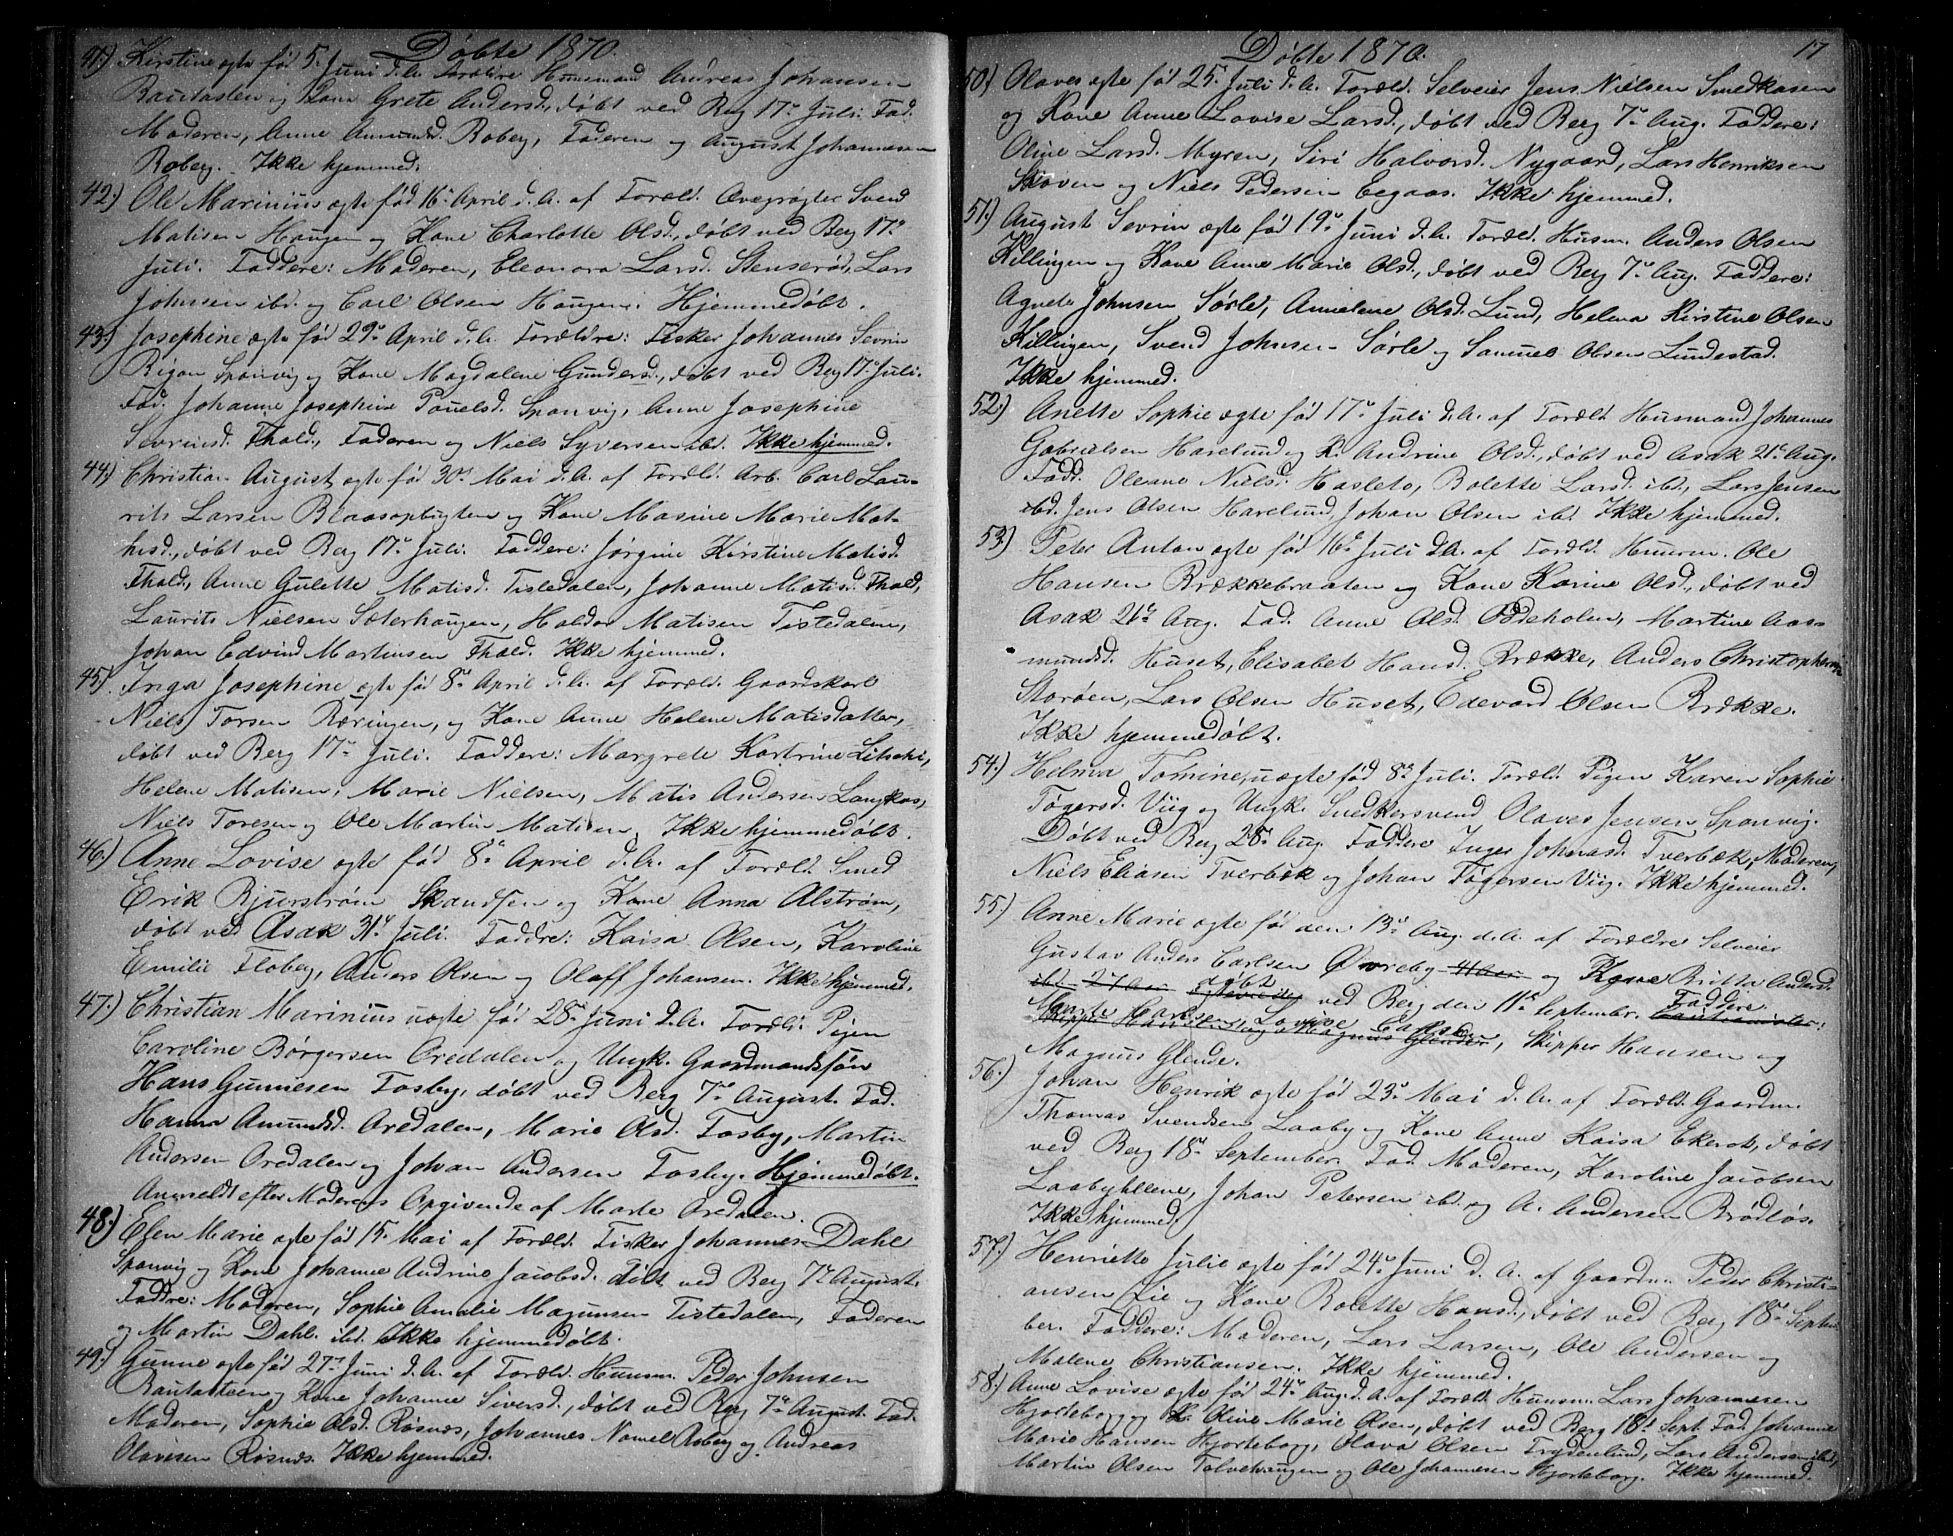 Døbte 1870.
41.) Kirstine ægte fød 5 Juni d.A. Forældre Huusmand Andreas Johansen
Rautasten og Kone Grete Andersd., døbt ved Berg 17de Juli. Fad.
Moderen, Anne Amundsd. Roberg, Faderen og August Johannesen
Roberg. Ikke hjemmed.
42.) Ole Marinius ægte fød 16de April d.A. af Foræld. Qvægrøgter Svend
Matisen Haugen og Kone Charlotte Olsd., døbt ved Berg 17de
Juli. Faddere: Moderen, Eleonora Larsd. Stenserød, Lars
Johnsen ibd. og Carl Olsen Haugen. Hjemmedøbt.
43.) Josephine ægte fød 29de April d.A. Forældre: Fisker Johannes Sevrin
Bigon Sponvig og Kone Magdalene Gundersd., døbt ved Berg 17de Juli.
Fad. Johanne Josephine Pouelsd. Sponvig, Anne Josephine
Sevrinsd. Fhald., Faderen og Niels Syversen ibd. Ikke hjemmed.
44.) Christian August ægte fød 30te Mai d.A. af Foræld. Arb. Carl Lau-
rits Larsen Blaasopbygten og Kone Maxine Marie Mat-
hisd., døbt ved Berg 17de Juli. Faddere: Jørgine Kirstine Matisd.
Fhald., Anne Gulette Matisd. Tistedalen, Johanne Matisd. Fhald,
Laurits Nielsen Sæterhaugen, Haldor Matisen Tistedalen,
Johan Edvind Martinsen Fhald. Ikke hjemmed.
45.) Inga Josephine ægte fød 8de April d.A. af Foræld. Gaardskarl
Niels Torsen Ræringen, og Kone Anne Helene Matisdatter,
døbt ved Berg 17de Juli. Faddere: Margrete Kartrine
Helene Matisen, Marie Nielsen, Matis Andersen Langkas,
Niels Toresen og Ole Martin Matisen. Ikke hjemmedøbt.
46.) Anne Lovise ægte fød 8de April d.A. af Foræld. Smed
Erik Bjurstrøm Skandsen og Kone Anna Alstrøm,
døbt ved Asak 31te Juli. Faddre: Kaisa Olsen, Karoline
Emilie Floberg, Anders Olsen og Olaff Johansen. Ikke hjemmed.
47.) Christian Marinius uægte fød 28de Juni d.A. Foræld. Pigen
Caroline Børgersen Oredalen og Ungk. Gaardmandssøn
Hans Gunnesen Fosby, døbt ved Berg 7de August. Fad.
Hanna Amundsd. Oredalen, Marie Olsd. Fosby, Martin
Andersen Oredalen og Johan Andersen Fosby. Hjemmedøbt.
Anmeldt efter Moderens Opgivende af Marte Oredalen.
48.) Elen Marie ægte fød 15 Mai af Foræld. Fisker Johannes Dahl
Sponvig og Kone Johanne Andrine Jacobsd. døbt ved Berg 7de August.
Faddre: Moderen, Sophie Amalie Magnusen Tistedalen, Faderen
og Martin Dahl. ibd. Ikke hjemmedøbt.
49.) Gunne ægte fød 27de Juni d.A. af Foræld. Huusm. Peder Johnsen
Rautasteen og Kone Johanne Siversd., døbt ved Berg 7de August. Fad.
Moderen, Sophie Olsd. Røsnæs, Johannes Roberg og Andreas
Olavesen Røsnæs. Ikke hjemmed.
Døbte 1870.
17
50.) Olaves ægte fød 25. Juli d.A. Foræld. Selveier Jens Nielsen Smedkasen
og Kone Anne Lovise Larsd., døbt ved Berg 7de Aug. Faddere:
Oline Larsd. Myren, Siri Halvorsd. Nygaard, Lars Henriksen
Skoven og Niels Pedersen Eegaas. Ikke hjemmed.
51.) August Sevrin ægte fød 19de Juni d.A. Foræld. Husm. Anders Olsen
Killingen og Kone Anne Marie Olsd., døbt ved Berg 7de Aug. Faddere:
Agnete Johnsen Sørle, Annelene Olsd. Lund, Helena Kirstine Olsen
Killingen, Svend Johnsen Sørle og Samuel Olsen Lundestad.
Ikke hjemmed.
52.) Anette Sophie ægte fød 17de Juli d.A. af Foræld. Husmand Johannes
Gabrielsen Harelund og K. Andrine Olsd., døbt ved Asak 21de Aug.
Fadd. Oleane Nielsd. Hasleto, Bolette Larsd. ibd., Lars Jensen
ibd. Jens Olsen Harelund, Johan Olsen ibd. Ikke hjemmed.
53.) Peter Anton ægte fød 16de Juli d.A. af Foræld. Huusm. Ole
Hansen Brækkebraaten og Kone Karine Olsd., døbt ved
Asak 21de Aug. Fad. Anne Olsd. Oddeholen, Martine Aas-
mundsd. Huset, Elisabet Hansd. Brække, Anders Christophersen
Storøen, Lars Olsen Huset, Edevard Olsen Brække.
Ikke hjemmedøbt.
54.) Helma Tomine, uægte fød 8de Juli. Foræld. Pigen Karen Sophie
Tøgersd. Viig og Ungk. Snedkersvend Olaves Jensen Sponvig.
Døbt ved Berg 28de Aug. Faddere Inger Johnasd. Tverbæk, Moderen,
Niels Eliasen Tverbæk og Johan Tøgersen Viig. Ikke hjemmed.
55) Anne Marie ægte fød den 13de Aug. d.A. af Forældre Selveier
Gustav Anders Carlsen Øvreby og Kone Britta Andersd.
døbt ved Berg den 11te September. Faddere
Marte Carlsen, Lovise Carlsen, Skipper Hansen og
Magnus Glende.
56.) Johan Henrik ægte fød 23de Mai d.A. af Foræld. Gaardm.
Thomas Svendsen Laaby og Kone Anne Kaisa Ekerot, døbt
ved Berg 18de September. Fad. Moderen, Karoline Jacobsen
Laabyhllene, Johan Petersen ibd. og A. Andersen Brødløs.
Ikke hjemmed.
57.) Henriette Julie ægte fød 24de Juni d.A. af Gaardm. Peder Christi-
ansen Lie og Kone Bolette Hansd., døbt ved Berg 18de Septem-
ber. Faddere: Moderen, Lars Larsen, Ole Andersen og
Malene Christiansen. Ikke hjemmed.
58.) Anne Lovise ægte fød 24de Aug. d.A. af Foræld. Huusm. Lars Johannesen
Hjorteborg og K. Oline Marie Olsen, døbt ved Berg 18d Sept. Fad. Johanne
Marie Hansen Hjorteborg, Olava Olsen Frydenlund, Lars Andersen ibd,
Martin Olsen Tolvehaugen og Ole Johannesen Hjorteborg. Ikke hjemmed.